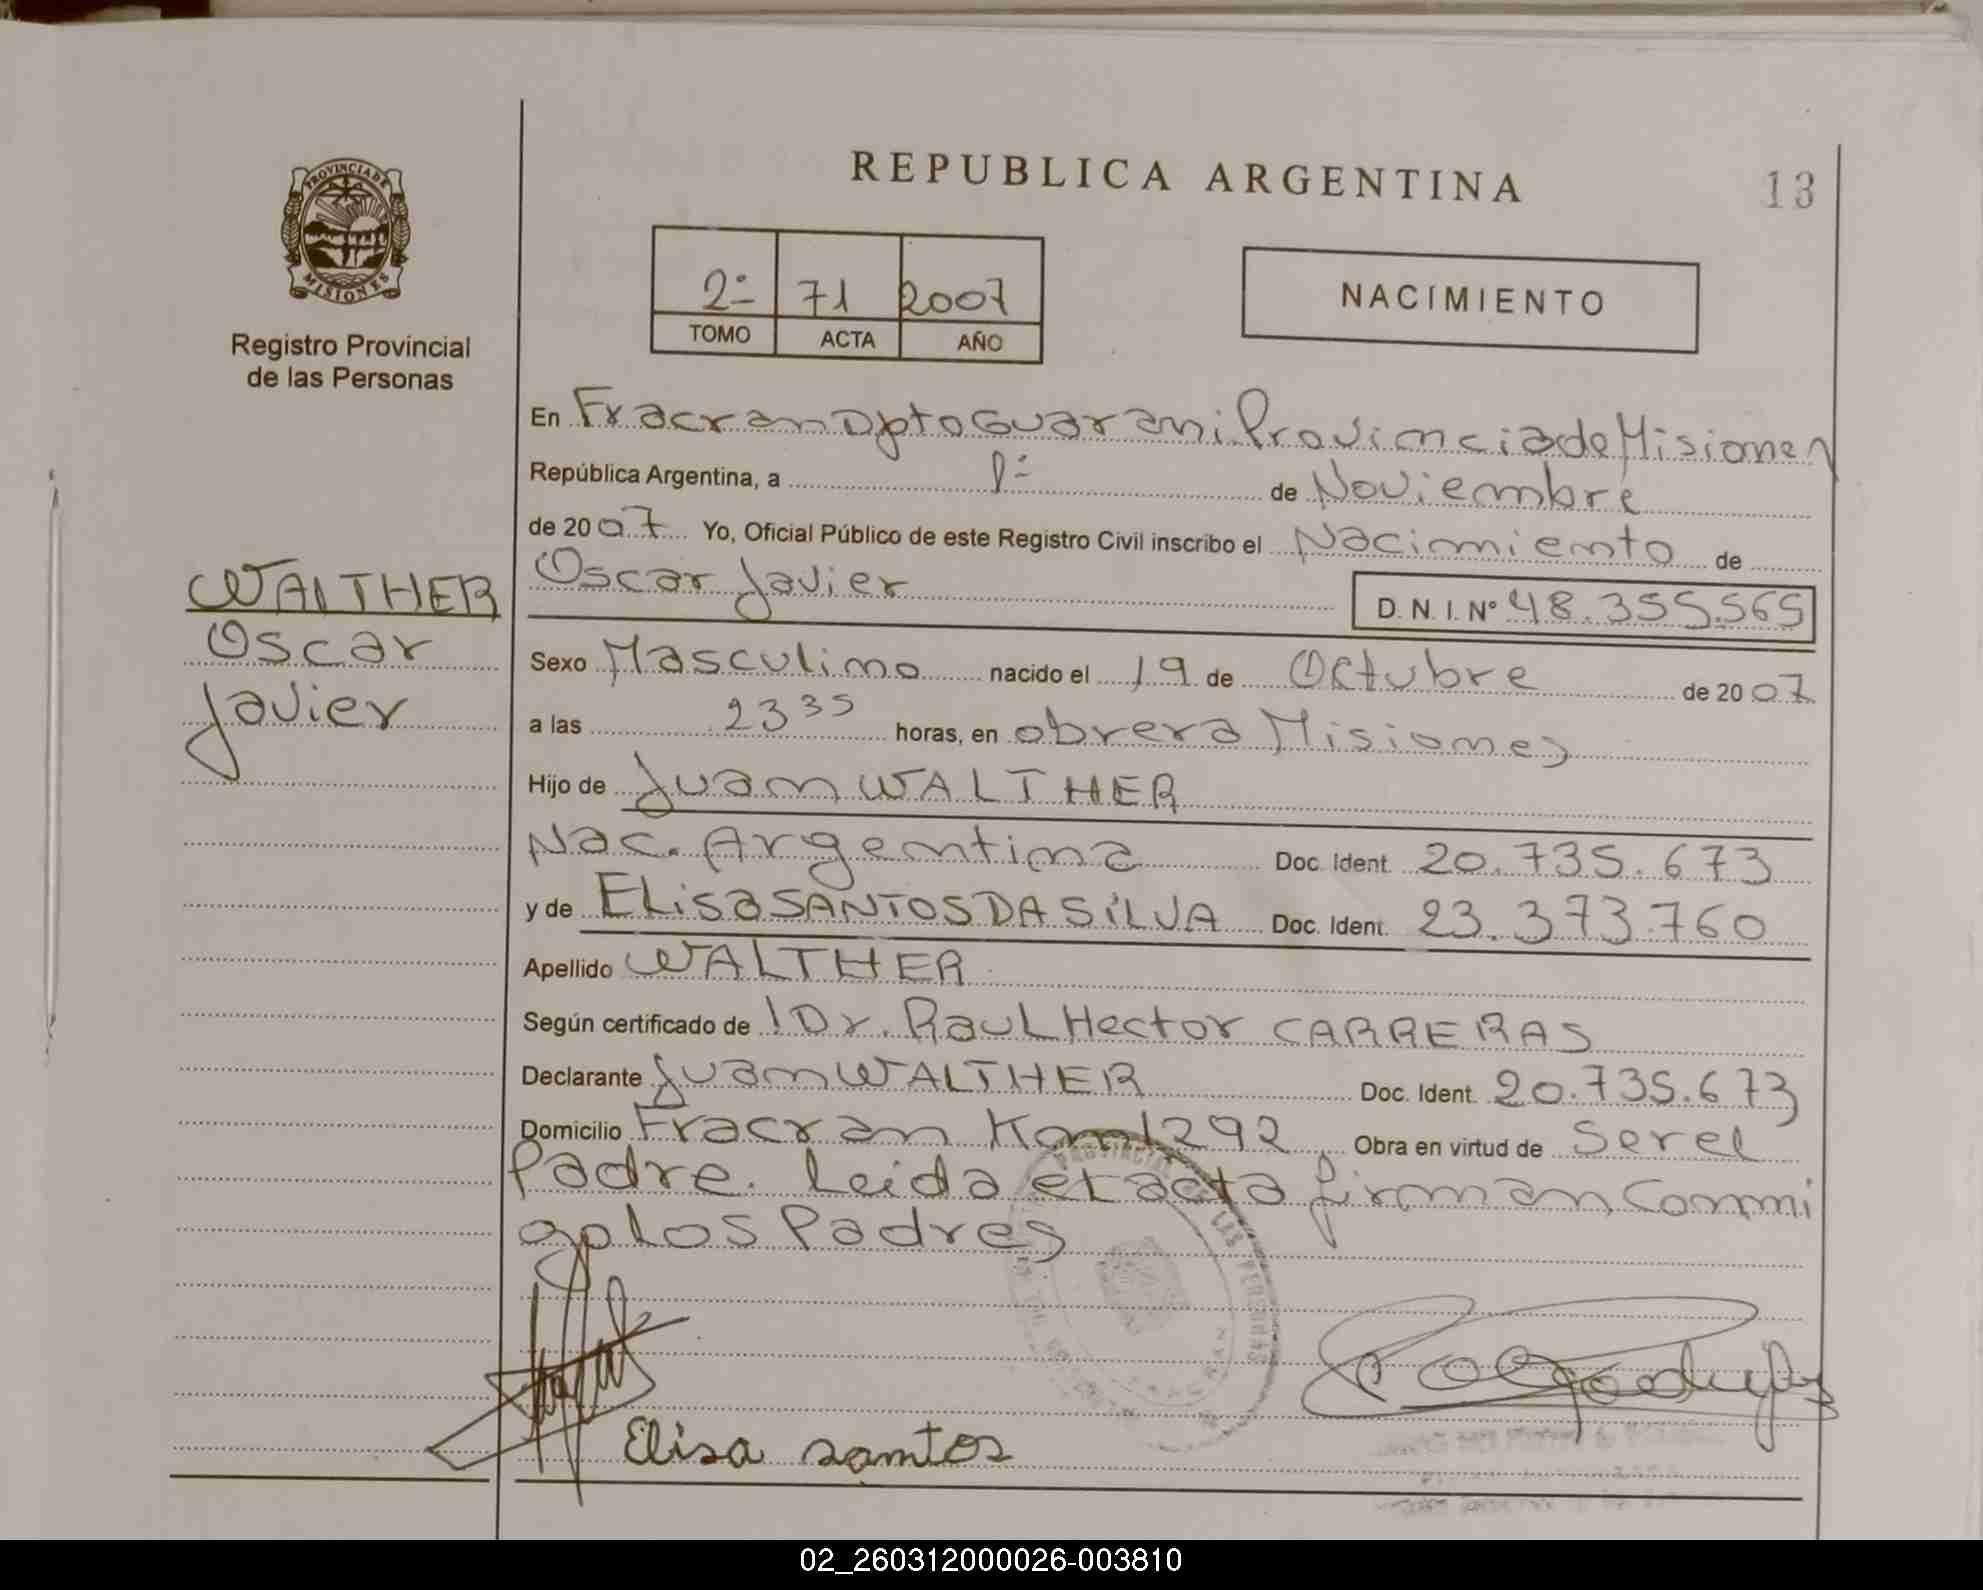 REPUBLICA ARGENTINA
13
PROVINCIA DE
MISIONES
Registro Provincial
de las Personas
2º 71 2007
TOMO ACTA AÑO
NACIMIENTO
En Fracran Dpto Guarani Provincia de Misiones
República Argentina, a 1º de Noviembre
de 2007 Yo, Oficial Público de este Registro Civil inscribo el Nacimiento de
Oscar Javier D.N.I. Nº 48.355.565
WALTHER
Oscar
Javier
Sexo Masculino nacido el 19 de Octubre de 2007
a las 23 35 horas, en obrera Misiones
Hijo de Juan WALTHER
Nac. Argentina Doc. Ident. 20.735.673
y de ELisa SANTOS DA SILVA Doc. Ident. 23.373.760
Apellido WALTHER
Según certificado de Dr. Raul Hector CARRERAS
Declarante Juan WALTHER Doc. Ident. 20.735.673
Domicilio Fracran Km 1292 Obra en virtud de Ser el
Padre. Leida el acta firman conmi
go los Padres
PROVINCIAL DE LAS PERSONAS
FRACRAN
Elisa santos
02_260312000026-003810